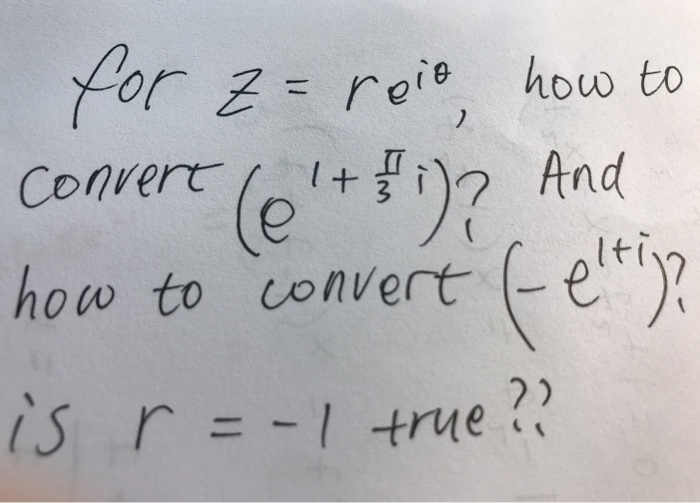 for z = re^{iθ}, how to
convert (e^{1 + π/3 i})? And
how to convert (-e^{1+i})?
is r = -1 true??